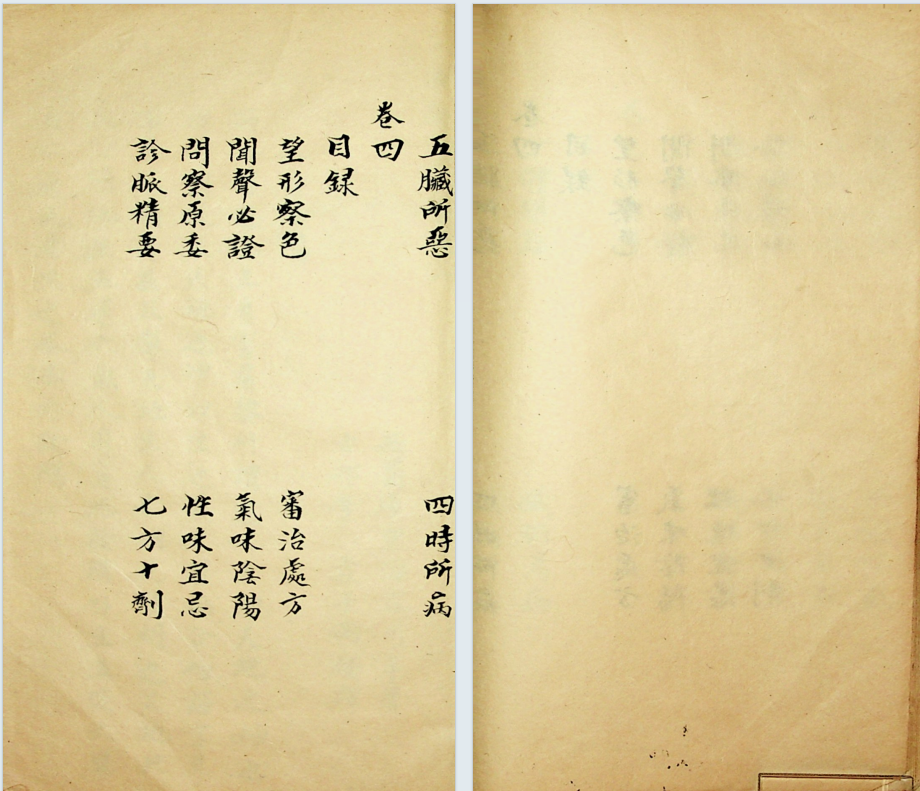 五臟所惡　四時所病
卷四
目録
望形察色　審治處方
聞聲必證　氣味陰陽
問察原委　性味宜忌
診脈精要　七方十劑